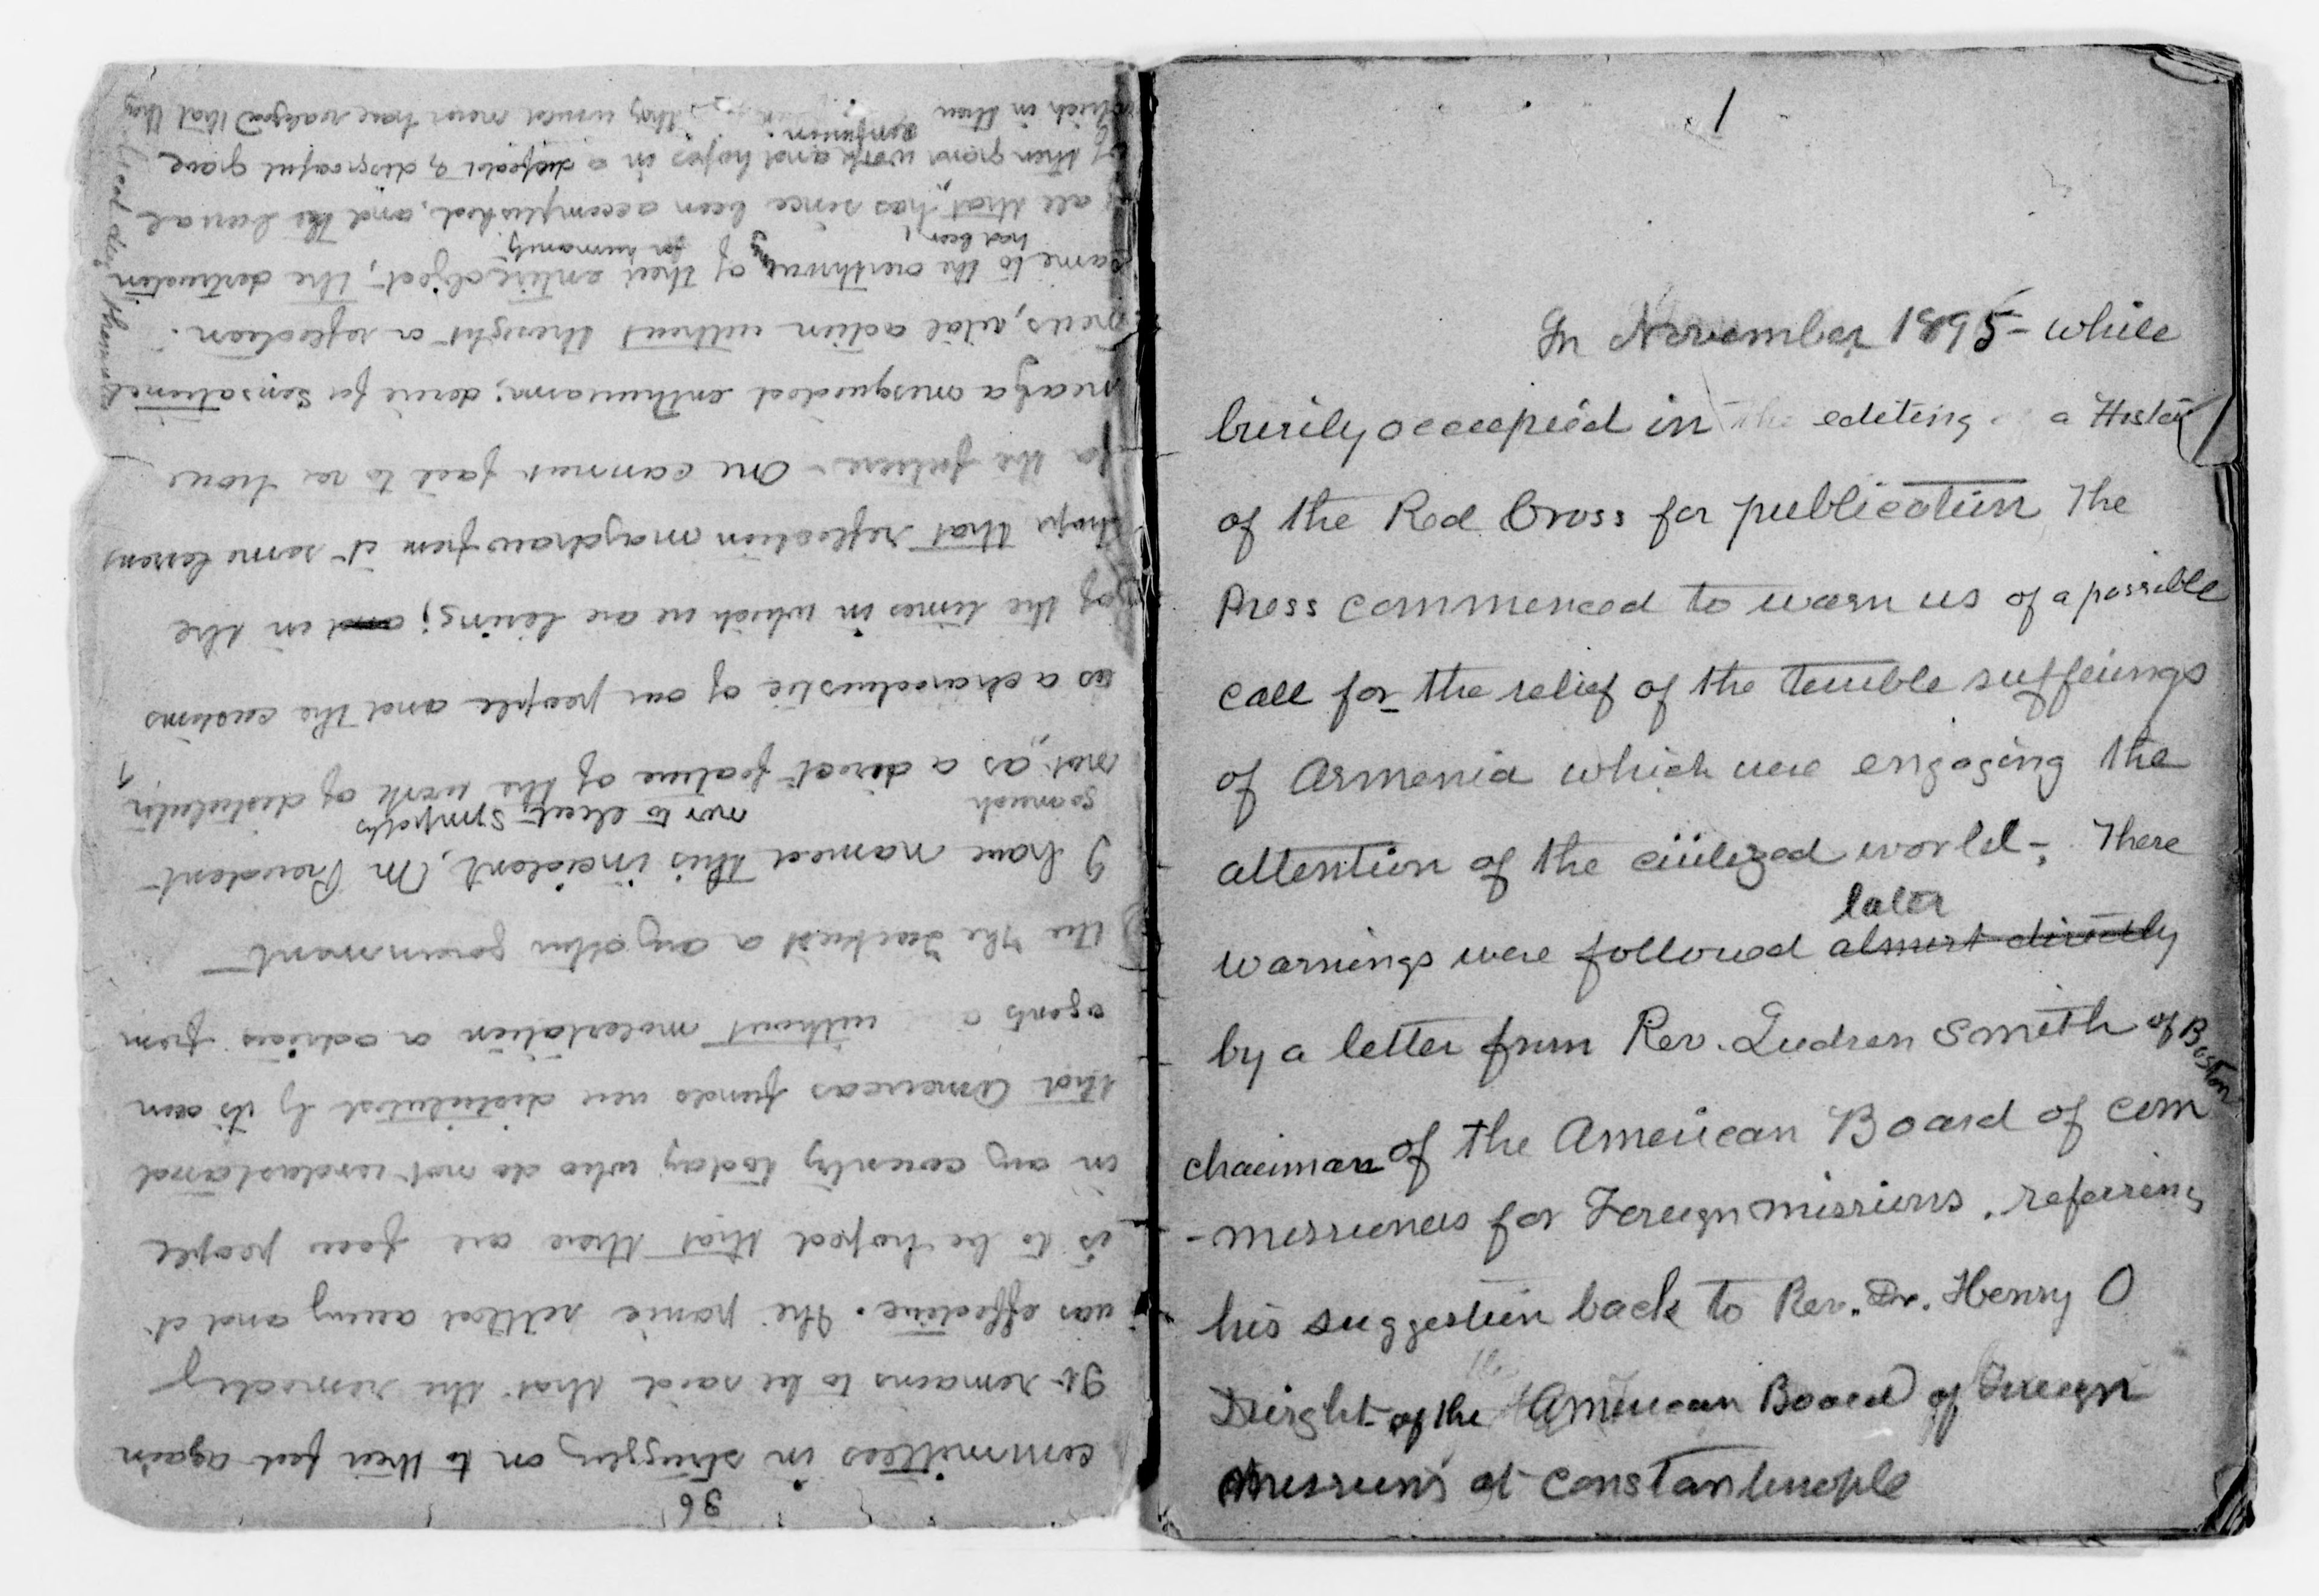 36
committees in struggling on to their feet again
It remains to be said that the remedy
was effective. The panic settled away and it
is to be hoped that there are few people
in any country today who do not understand
that Americas funds were distributed by its own
agents without molestation or advices from
the The Turkish or any other government
I have named this incident, Mr President
so much nor to elicit sympathy
not, as a direct feature of the work of distributn
as a characteristic of our people and the customs
of the times in which we are living; and in the
hope that reflection may draw from it some lessons
for the future - One cannot fail to see how
near a misguided enthusiasm; desire for sensational
news, vital action without thought or reflection.
came to the overthrow of their entire object, the destruction
had been for humanity
of all that has since been accomplished, and the burial
of their grand work and hopes in a disgraceful grave
confusion
which in their they would never have realized that they
had dug themselves
1
In November 1895 - while
busily occupied in the editing of a Histor
of the Red Cross for publication The
Press commenced to warn us of a possible
call for the relief of the terrible sufferings
of Armenia which were engaging the
attention of the civilized world -. There
later
warnings were followed almost directly
by a letter from Rev. Judson Smith of Boston
chairman of the American Board of com
-missioners for Foreign missions, referring
his suggestion back to Rev. Dr. Henry O
Dwight of the American Board of Foreign
Missions at Constantinople